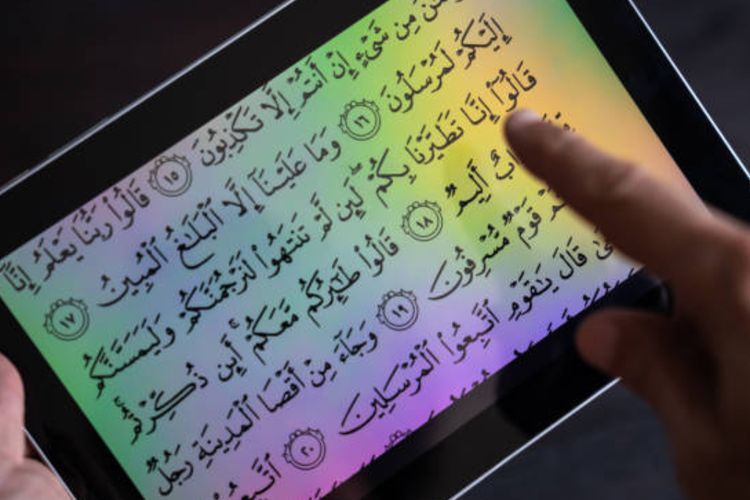 مِن شَىْءٍ إِنْ أَنتُمْ إِلَّا تَكْذِبُونَ ١٥ قَالُوا۟ رَبُّنَا يَعْلَمُ إِنَّآ
إِلَيْكُمْ لَمُرْسَلُونَ ١٦ وَمَا عَلَيْنَآ إِلَّا ٱلْبَلَٰغُ ٱلْمُبِينُ ١٧
قَالُوٓا۟ إِنَّا تَطَيَّرْنَا بِكُمْ لَئِن لَّمْ تَنتَهُوا۟ لَنَرْجُمَنَّكُمْ وَلَيَمَسَّنَّكُم
أَلِيمٌ ١٨ قَالُوا۟ طَٰٓئِرُكُم مَّعَكُمْ أَئِن ذُكِّرْتُم
قَوْمٌ مُّسْرِفُونَ ١٩ وَجَآءَ مِنْ أَقْصَا ٱلْمَدِينَةِ رَجُلٌ
قَالَ يَٰقَوْمِ ٱتَّبِعُوا۟ ٱلْمُرْسَلِينَ ٢٠